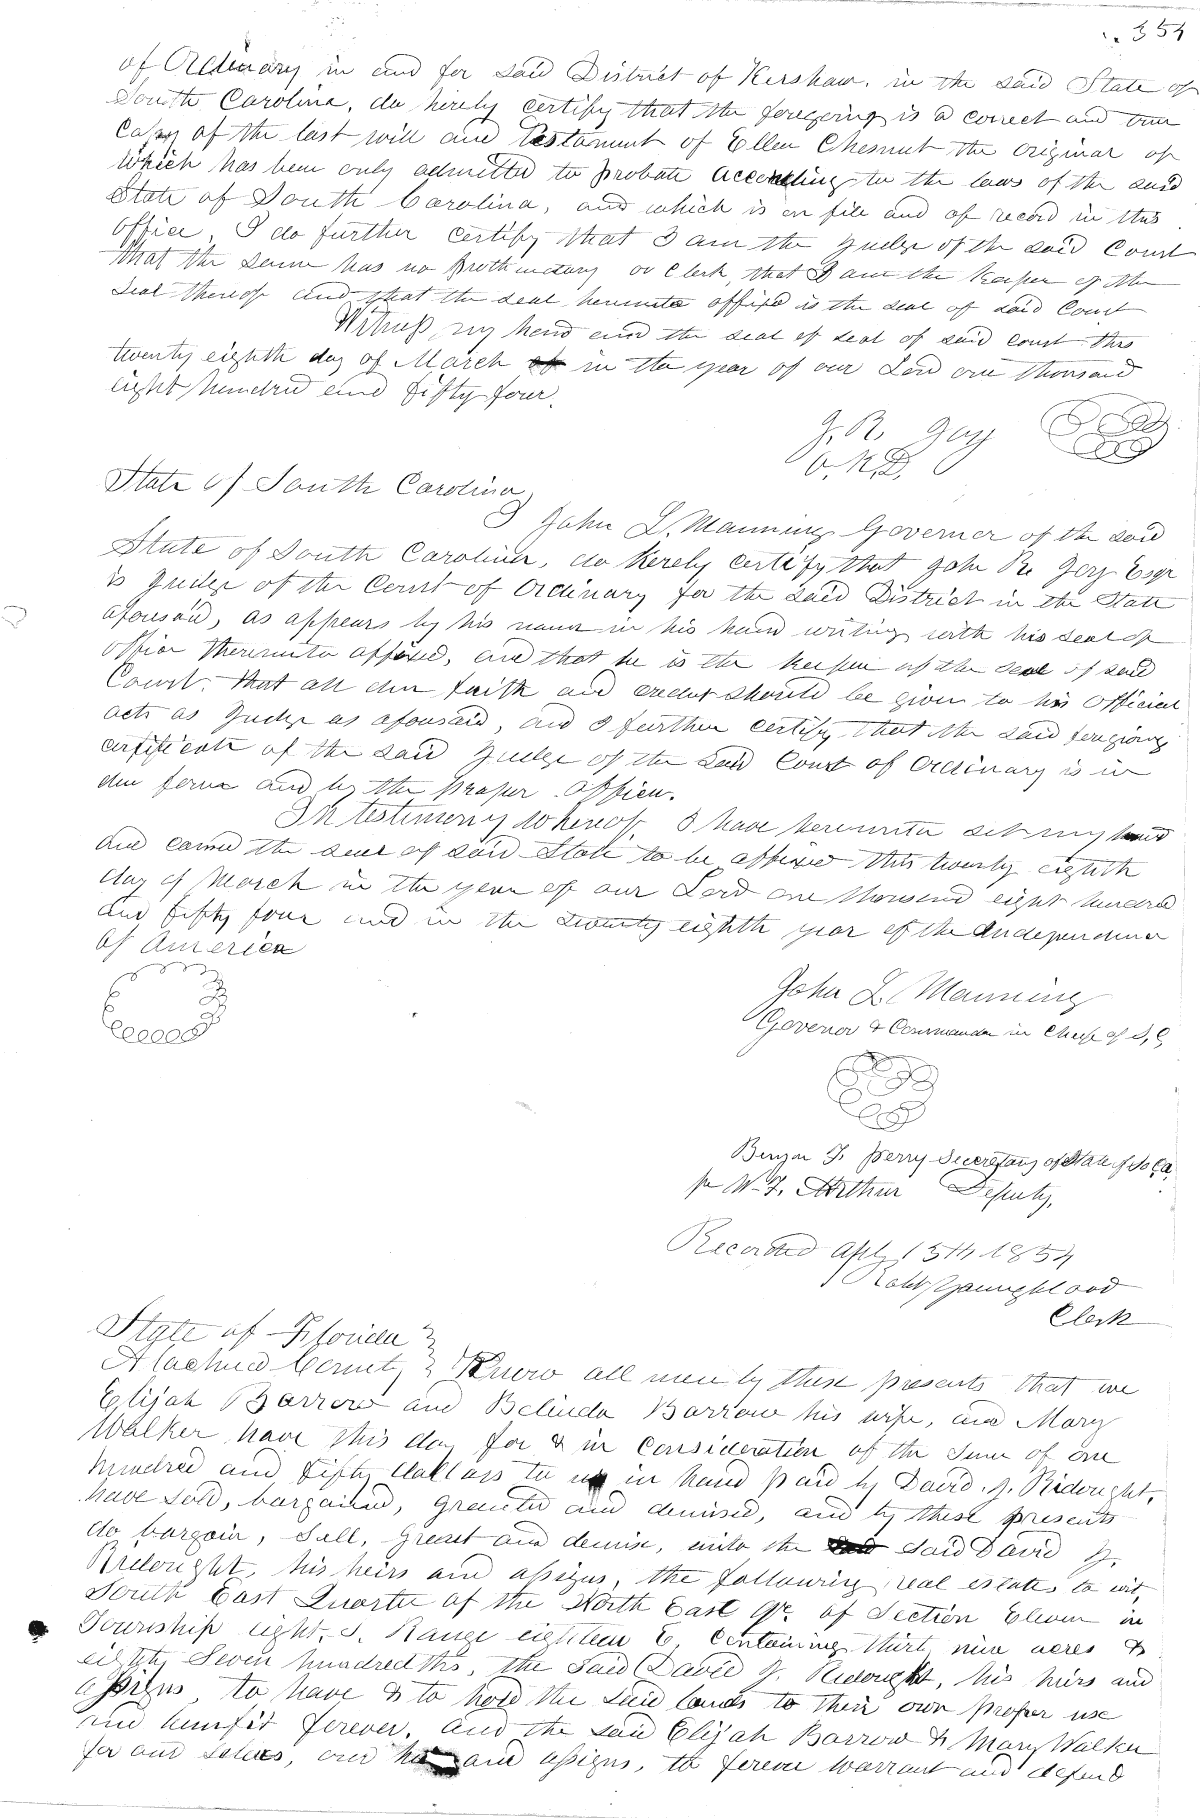 354
of Ordinary in and for said District of Kershaw, in the said State of
South Carolina, do hirely certify that the foregoing is a correct and true
Copy of the last will and Testament of Ellen Chesnut the original of
which has been only admitted to probate according to the laws of the said
State of South Carolina, and which is on file and of record in this
office, I do further certify that I am the Judge of the said Court
that the same has no prothonotary or Clerk, that I am the keeper of the
seal thereof and that the seal hereunto affixed is the seal of said Court
Witness my hand and the seal of seal of said court this
twenty eighth day of March in the year of our Lord one thousand
eight hundred and fifty four.
J. R. Joy
O. K. D.
State of South Carolina
I John L. Manning Governor of the said
State of South Carolina, do herely certify that John R. Joy Esqr
is Judge of the Court of Ordinary for the said District in the State
aforesaid, as appears by his name in his hand writing with his seal of
office thereunto affixed, and that he is the keeper of the seal of said
Court. that all due faith and credit should be given to his official
acts as Judge as aforesaid, and I further certify that the said foregoing
certificate of the said Judge of the said Court of Ordinary is in
due form and by the proper officer.
In testimony whereof, I have hereunto set my hand
and caused the seal of said State to be affixed this twenty eighth
day of March in the year of our Lord one thousand eight hundred
and fifty four and in the seventy eighth year of the Independence
of America
John L. Manning
Governor & Commander in Chief of S, C,
Benjn F. Perry Secretary of State of So Ca,
pr W. F. Arthur Deputy,
Recorded Apl, 15th 1854
Robt Youngblood
Clerk
State of Florida }
Alachua County } Know all men by these presents that we
Elijah Barrow and Belinda Barrow his wife, and Mary
Walker have this day for & in Consideration of the sum of one
hundred and fifty dollars to us in hand paid by David J. Ridought,
have sold, bargained, granted and demised, and by these presents
do bargain, sell, grant and demise, unto the said David J.
Ridought, his heirs and assigns, the following real estates to wit,
South East Quarter of the North East Qr. of Section Eleven in
Township eight, S. Range eighteen E, Containing thirty nine acres &
eighty seven hundredths, the said David J. Ridought, his heirs and
assigns, to have & to hold the said lands to their own proper use
and benefit forever, and the said Elijah Barrow & Mary Walker
for our selves, our and assigns, to forever warrant and defend